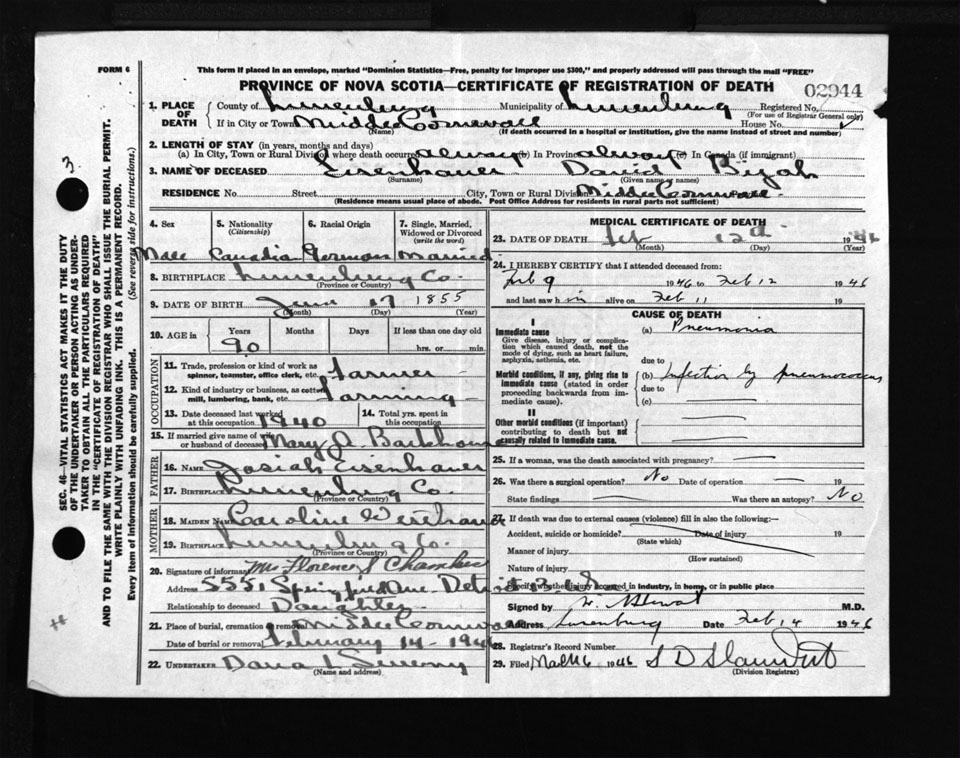 FORM 6
This form if placed in an envelope, marked "Dominion Statistics—Free, penalty for improper use $300," and properly addressed will pass through the mail "FREE"
PROVINCE OF NOVA SCOTIA—CERTIFICATE OF REGISTRATION OF DEATH
02944
1. PLACE OF DEATH
County of Lunenburg Municipality of Lunenburg Registered No.
(For use of Registrar General only)
If in City or Town Middle Cornwall House No.
(Name) (If death occurred in a hospital or institution, give the name instead of street and number)
2. LENGTH OF STAY (in years, months and days)
(a) In City, Town or Rural Division where death occurred always (b) In Province always (c) In Canada (if immigrant)
3. NAME OF DECEASED Eisenhauer David Bijah
(Surname) (Given name or names)
RESIDENCE No. Street City, Town or Rural Division Middle Cornwall
(Residence means usual place of abode. Post Office Address for residents in rural parts not sufficient)
4. Sex 5. Nationality (Citizenship) 6. Racial Origin 7. Single, Married, Widowed or Divorced (write the word)
Male Canadia German Married
8. BIRTHPLACE Lunenburg Co.
(Province or Country)
9. DATE OF BIRTH June 17 1855
(Month) (Day) (Year)
10. AGE in Years Months Days If less than one day old
90 hrs. or min.
OCCUPATION
11. Trade, profession or kind of work as spinner, teamster, office clerk, etc. Farmer
12. Kind of industry or business, as cotton mill, lumbering, bank, etc. Farming
13. Date deceased last worked at this occupation 1940 14. Total yrs. spent in this occupation
15. If married give name of wife or husband of deceased Mary A. Barkhouse
FATHER
16. NAME Josiah Eisenhauer
17. BIRTHPLACE Lunenburg Co.
(Province or Country)
MOTHER
18. MAIDEN NAME Caroline
19. BIRTHPLACE Lunenburg Co.
(Province or Country)
20. Signature of informant Mrs Florence S Chamber
Address 5551 Springfield Ave. Detroit
Relationship to deceased Daughter
21. Place of burial, cremation or removal Middle Cornwall
Date of burial or removal February 14 - 1946
22. UNDERTAKER Dana L Sweeny
(Name and address)
MEDICAL CERTIFICATE OF DEATH
23. DATE OF DEATH Feb 12th 1946
(Month) (Day)
24. I HEREBY CERTIFY that I attended deceased from:
Feb 9 1946 to Feb 12 1946
and last saw him alive on Feb 11 19
CAUSE OF DEATH
I
Immediate cause (a) Pneumonia
Give disease, injury or complication which caused death, not the mode of dying, such as heart failure, asphyxia, asthenia, etc.
due to
Morbid conditions, if any, giving rise to immediate cause (stated in order proceeding backwards from immediate cause).
(b) Infection by pneumococcus
due to
(c)
II
Other morbid conditions (if important) contributing to death but not causally related to immediate cause.
25. If a woman, was the death associated with pregnancy?
26. Was there a surgical operation? No Date of operation 19
State findings Was there an autopsy? No
27. If death was due to external causes (violence) fill in also the following:—
Accident, suicide or homicide? Date of injury 19
(State which)
Manner of injury
(How sustained)
Nature of injury
Specify whether injury occurred in industry, in home, or in public place
Signed by M.D.
Address Lunenburg Date Feb 14 1946
28. Registrar's Record Number
29. Filed 1946
(Division Registrar)
SEC. 46—VITAL STATISTICS ACT MAKES IT THE DUTY
OF THE UNDERTAKER OR PERSON ACTING AS UNDER-
TAKER TO OBTAIN ALL THE PARTICULARS REQUIRED
IN THE "CERTIFICATE OF REGISTRATION OF DEATH"
AND TO FILE THE SAME WITH THE DIVISION REGISTRAR WHO SHALL ISSUE THE BURIAL PERMIT.
WRITE PLAINLY WITH UNFADING INK. THIS IS A PERMANENT RECORD.
Every item of information should be carefully supplied. (See reverse side for instructions.)
3.